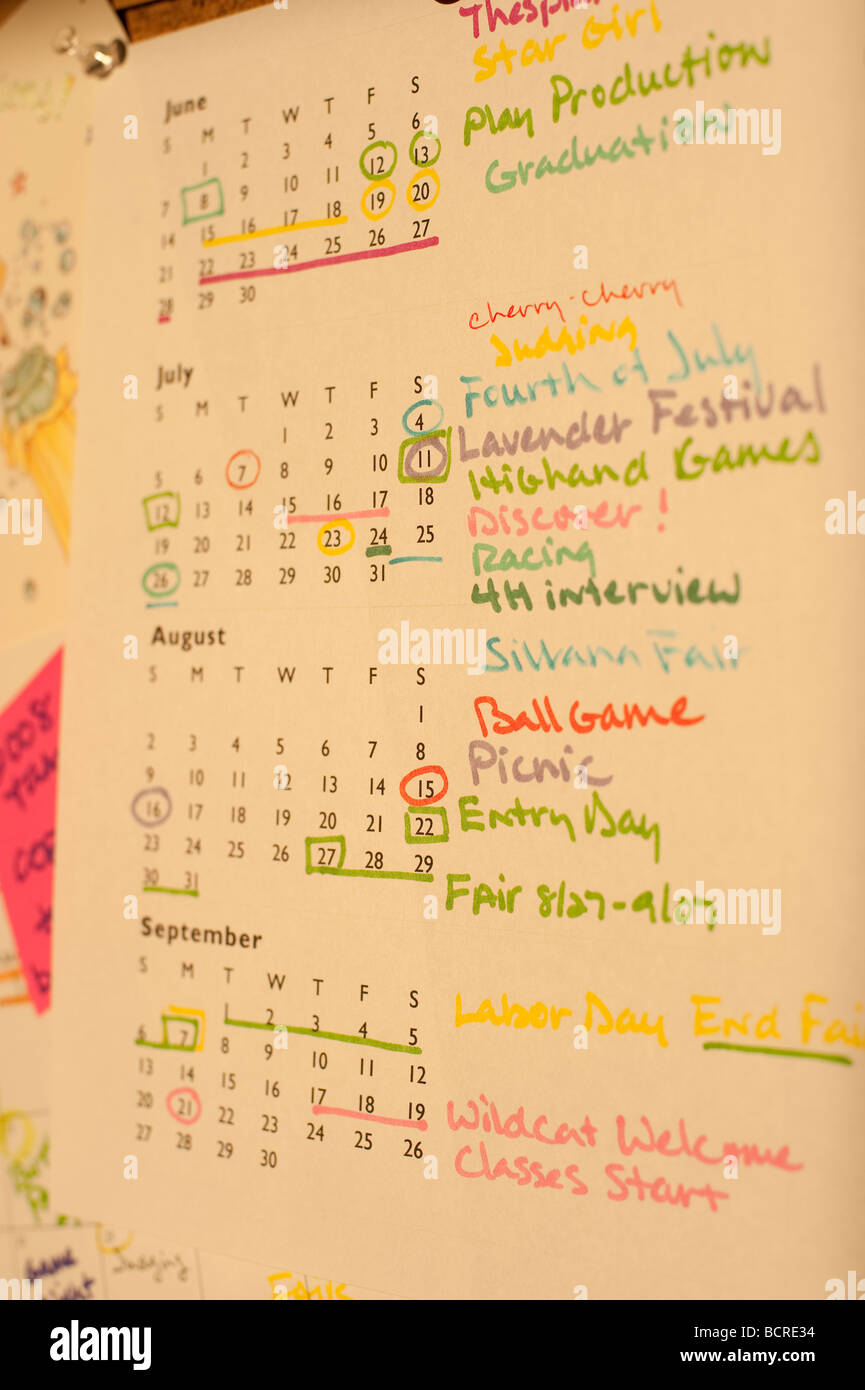 Star Girl
Play Production
Graduation
June
S M T W T F S
1 2 3 4 5 6
7 8 9 10 11 12 13
14 15 16 17 18 19 20
21 22 23 24 25 26 27
28 29 30
cherry-cherry
Judging
Fourth of July
Lavender Festival
Highand Games
Discover!
Racing
4H interview
Sillvana Fair
July
S M T W T F S
1 2 3 4
5 6 7 8 9 10 11
12 13 14 15 16 17 18
19 20 21 22 23 24 25
26 27 28 29 30 31
August
S M T W T F S
1
2 3 4 5 6 7 8
9 10 11 12 13 14 15
16 17 18 19 20 21 22
23 24 25 26 27 28 29
30 31
Ball Game
Picnic
Entry Day
FAir 8/27-9/07
September
S M T W T F S
1 2 3 4 5
6 7 8 9 10 11 12
13 14 15 16 17 18 19
20 21 22 23 24 25 26
27 28 29 30
Labor Day End Fai
Wildcat Welcome
Classes Start
Judging
alamy
Image ID: BCRE34
www.alamy.com